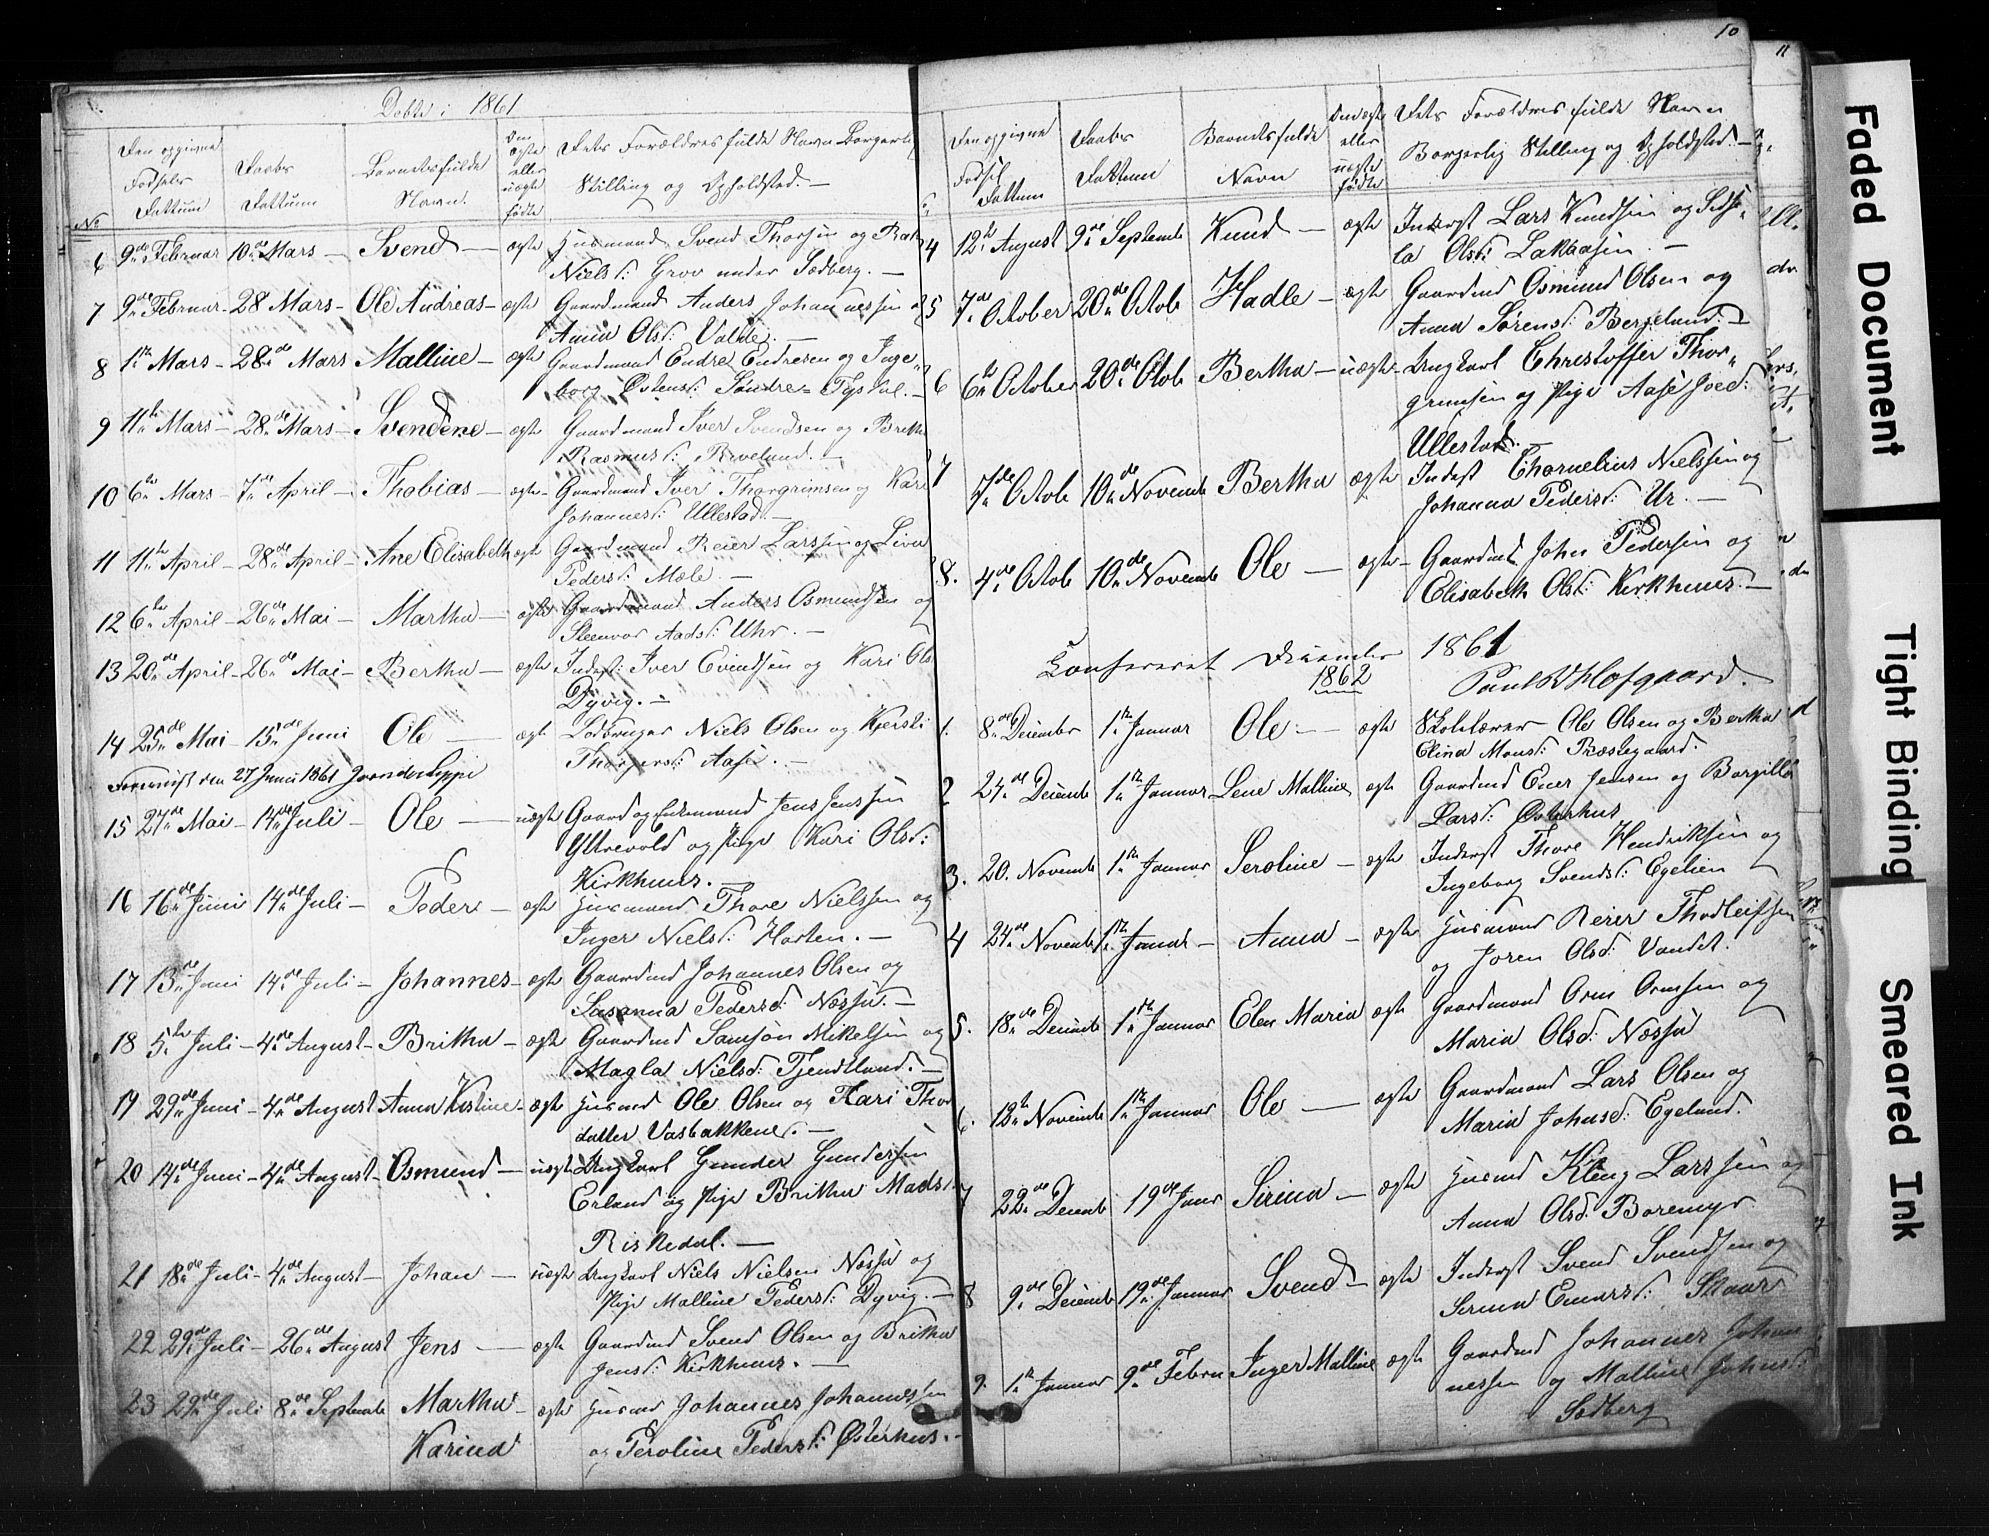 Døbte i 1861
No
Den opgivne Fødsels Dattum
Daabs Dattum
Barnets fulde Navn
Om ægte eller uægte fødte
Dets Forældres fulde Navn Borgerlig Stilling og Opholdsted. —
6 9de Februar 10de Mars — Svend — ægte Huusmand Svend Thorsen og
Nielsd: Grov under Sødberg. —
7 9de Februar — 28 Mars — Ole Andreas — ægte Gaardmand Anders Johannessen og
Anna Olsd: Valde. —
8 1ste Mars — 28de Mars Malline — ægte Gaardmand Endre Endresen og Inge„
borg Østensd: Søndre Tysdal. —
9 11te Mars — 28de Mars — Svendene — ægte Gaardmand Iver Svendsen og Britha
Rasmusd: Riveland. —
10 6te Mars — 7de April — Thobias — ægte — Gaardmand Iver Thorgrimsen og Kari
Johannesd: Ullestad. —
11 11te April — 28de April — Ane Elisabeth ægte Gaardmand Reier Larssen og Liva
Pedersd: Mæle. —
12 6te April — 26de Mai — Martha — ægte Gaardmand Anders Osmundsen og
Steenvor Aadsd: Uhr. —
13 20de April — 26de Mai — Bertha — ægte Inderst: Iver Evindsen og Kari Ols
Dyvig. —
14 25de Mai — 15de Juni Ole — ægte Lodbruger Niels Olsen og Kjersti
Thorgersd: Aase. —
Foreviist den 27 Juni 1861
15 27de Mai — 14de Juli — Ole — uægte Gaard og Enkemand Jens Jenssen
Yttrevold og Pige Kari Olsd:
Kirkhuus. —
16 16de Juni 14de Juli — Peder — ægte Huusmand Thore Nielssen og
Inger Nielsd: Horten. —
17 13de Juni 14de Juli — Johannes — ægte Gaardmd Johannes Olsen og
Susanna Pedersd: Næssa. —
18 5te Juli — 4de August — Britha — ægte Gaardmd Samson Mikelsen og
Magla Nielsd: Tjendtland. —
19 29de Juni — 4de August Anna Kistine — ægte Huusmd Ole Olsen og Kari Thor
datter Vasbakkene. —
20 14de Juni — 4de August — Osmund — uægte Ungkarl Gunder Gundersen
Erland og Pige Britha Madsd.
Riskedal. —
21 18de Juli — 4de August — Johan — uægte Ungkarl Niels Nielsen Næssa og
Pige Malline Pedersd: Dyvig. —
22 29de Juli — 26de August Jens — ægte Gaardmd Svend Olsen og Britha
Jensd: Kirkhuus. —
23 29de Juli 8de Septembe Martha — ægte Huusmd Johannes Johannessen
Karina og Peroline Pedersd: Østerhus. —
10
11
Den opgivne Fødsel Dattum
Daabs Dattum
Barnets fulde Navn
Om ægte eller uægte fødte
Dets Forældres fulde Navn Borgerlig Stilling og Opholdsted. —
4 12te August 9de Septembe Knud — ægte Inderst Lars Knudsen og Sidse„
la Olsd: Lakbasen. —
5 7de October 20de Octob Hadle — ægte Gaardmd Osmund Olsen og
Anna Sørensd: Bergeland. —
6 6te October 20de Otob Bertha — uægte — Ungkarl Christoffer Thor„
grimsen og Pige Aase Joed:
Ullestad. —
7 7de Octob 10de Novembe Bertha ægte Inderst Chornelius Nielssen og
Johanna Pedersd: Ur. —
8. 4de Octob 10de Novembe Ole — ægte — Gaardmd John Pedersen og
Elisabeth Olsd: Kirkhuus. —
Konfereret December 1861
1862 Paul Hofgaard.
1. 8de Deiember 1ste Januar Ole — ægte Skolelærer Ole Olsen og Bertha
Elina Monsd: Præstegaard.
2 24de Deiembe 1ste Januar Lene Malline ægte Gaardmd Ener Jensen og Borgilla
Larsd: Østerhus
3. 20. Novembe 1ste Januar Seroline — ægte Inderst Thore Hendriksen og
Ingeborg Svendsd: Egelien
4 24de Novembe 1ste Januar — Anna — ægte Huusmand Reier Thodleifsen
og Joren Olsd: Vandet.
5. 18de Deiembe 1ste Januar Elen Maria ægte Gaardmand Orm Ormsen og
Maria Olsd: Næssa
6. 12te Novembe 1ste Januar Ole — ægte Gaardmand Lars Olsen og
Maria Johnsd: Egeland.
7 22de Deiembe 19de Januar Sirina — ægte Huusmd Kleng Larssen og
Anna Olsd: Boremyr.
8 9de Deiembe 19de Januar Svend — ægte Inderst Svend Svendsen og
Serina Enarsd: Skaar
9. 1ste Januar 9de Febru Inger Malline ægte Gaardmd Johannes Johan
nessen og Malline Johnsd:
Sødberg
Faded Document
Tight Binding
Smeared Ink